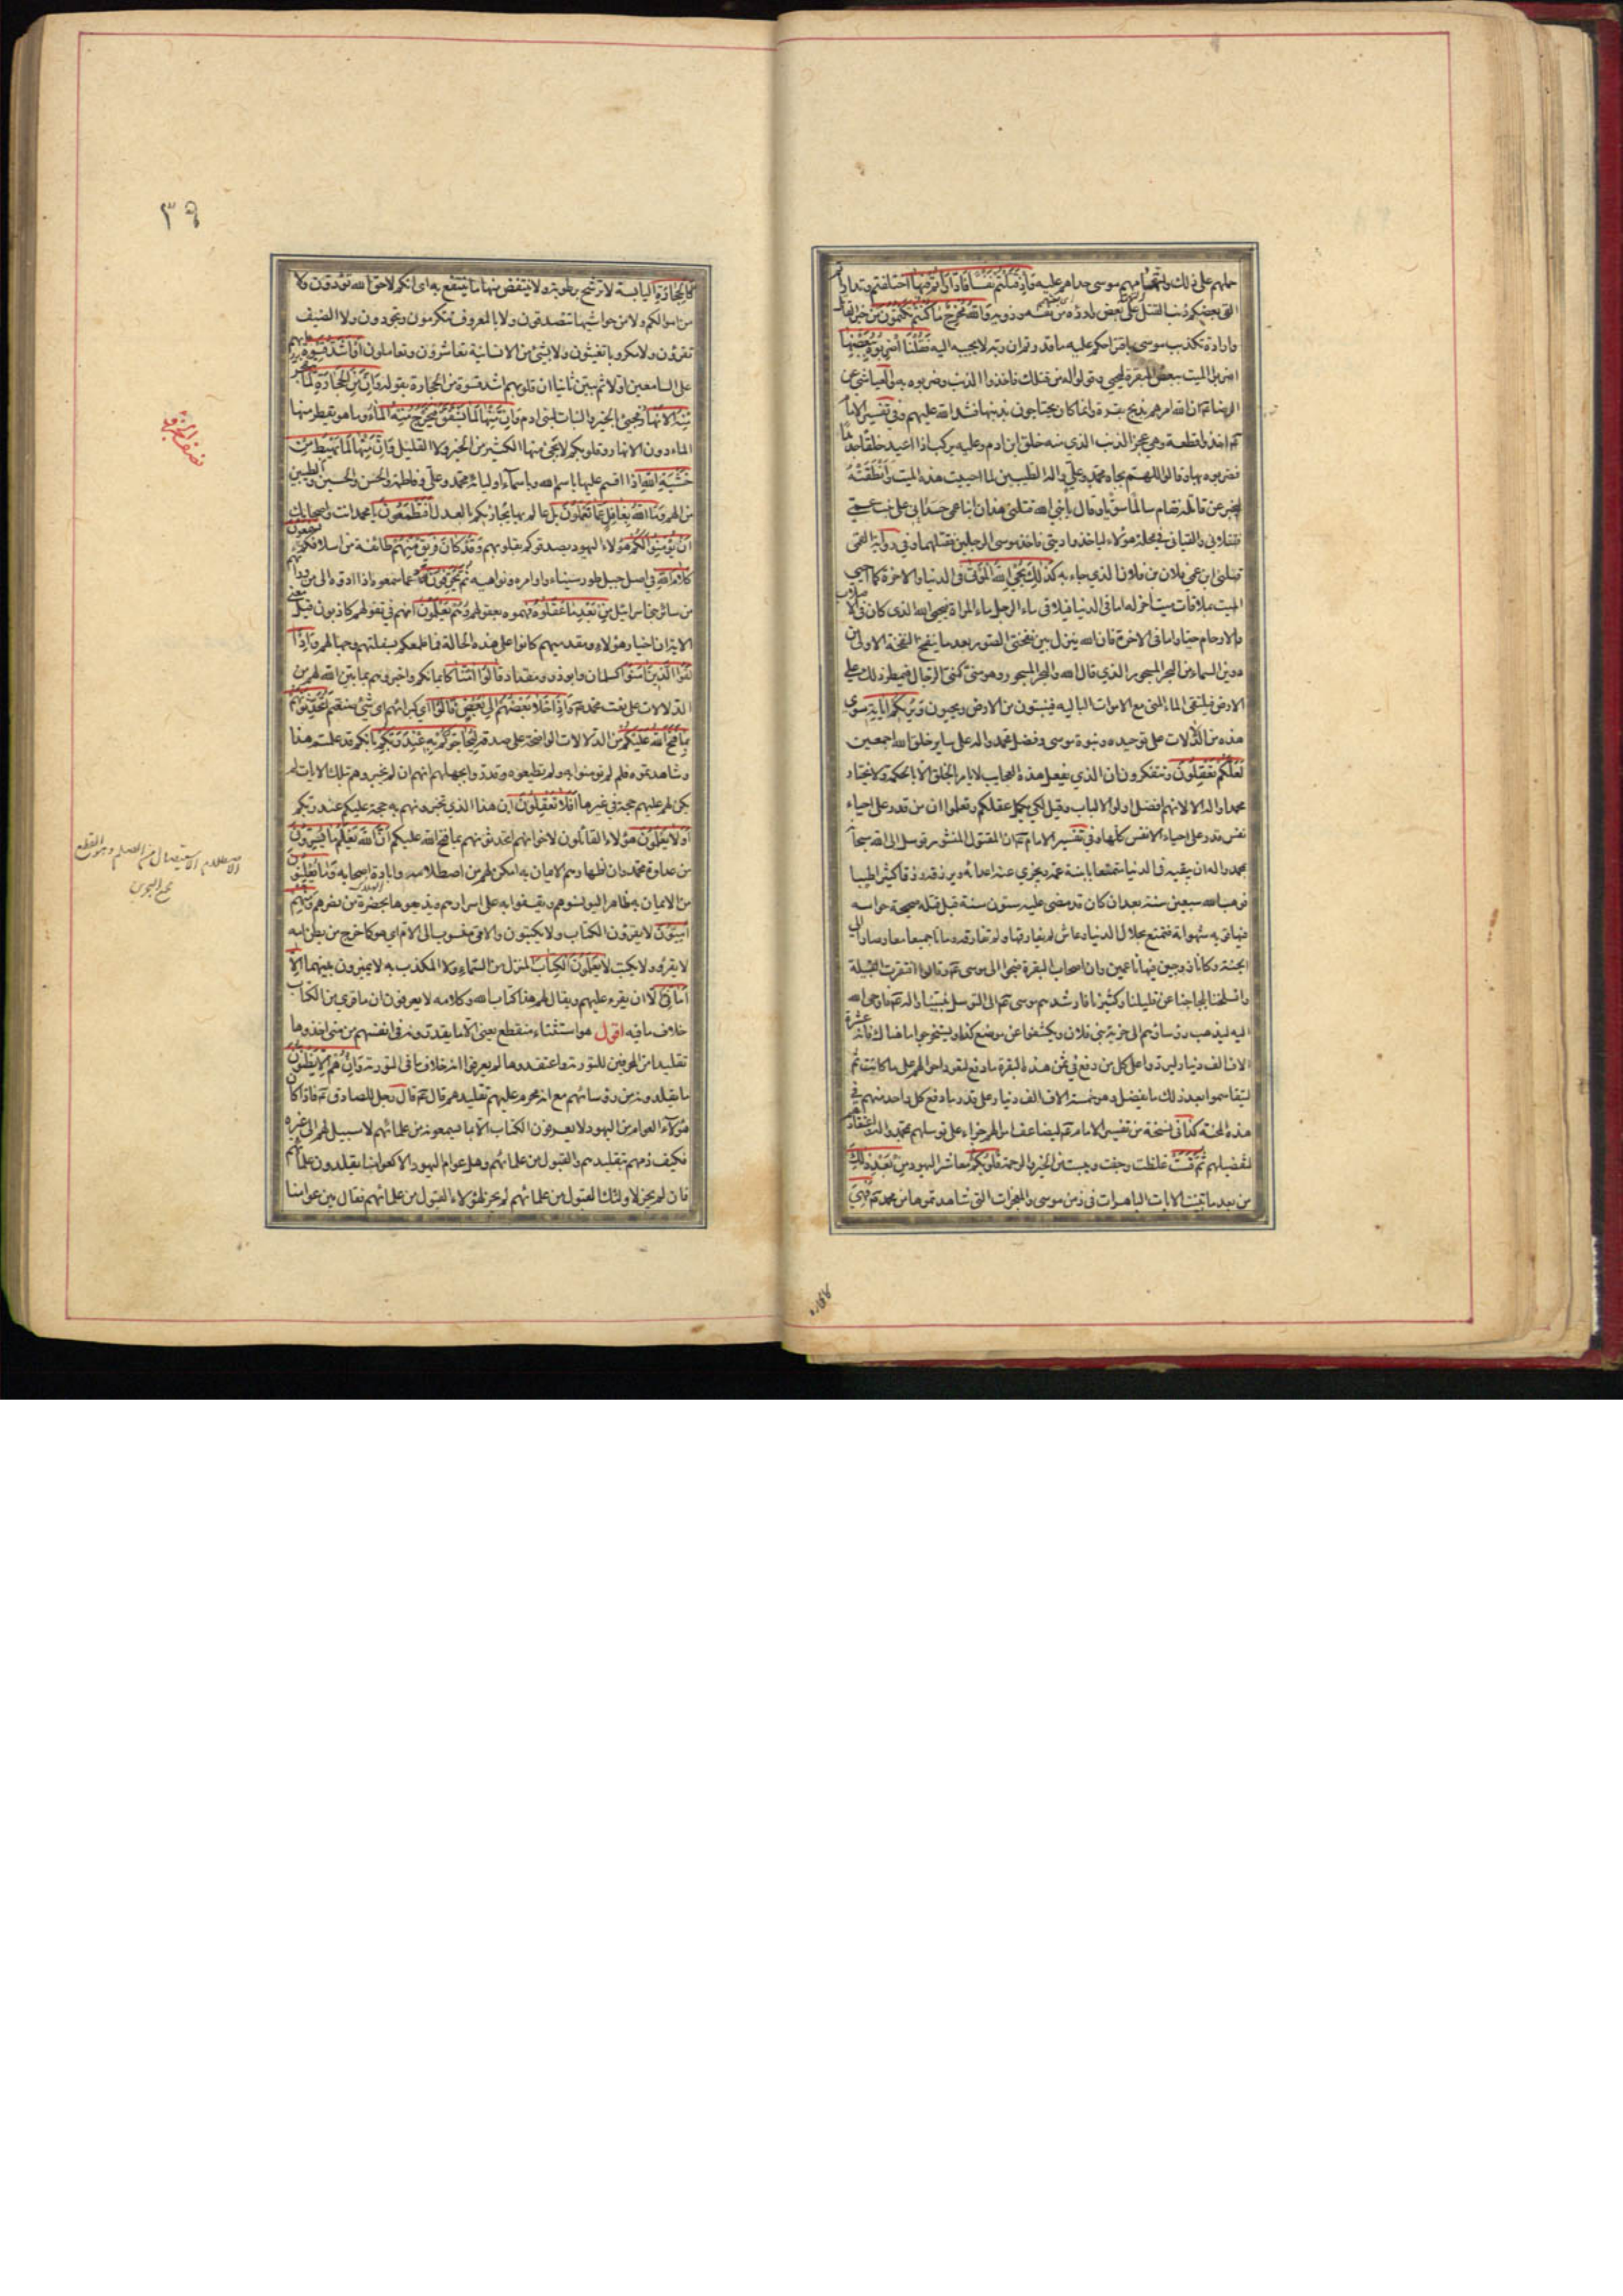 حملهم على ذلك واتهامهم موسى حداهم عليه وَاِذْ قَتَلْتُمْ نَفْسًا فَادَّارَأْتُمْ فِيهَا اختلفتم وتدارأتم
القى بعضكم ذنب القتل على بعض وادرؤه من نفسه وذويه وَاللّٰهُ مُخْرِجٌ مَا كُنْتُمْ تَكْتُمُونَ من خبر القاتل
وارادة تكذيب موسى باقتراحكم عليه ما قدرتم ان ربه لا يجيبه اليه فَقُلْنَا اضْرِبُوهُ بِبَعْضِهَا
اضربوا الميت ببعض البقرة ليحيى وقولوا له من قتلك فاخذوا الذنب وضربوه به والعياشي عن
الرضا ان الله امرهم بذبح بقرة وانما كانوا يحتاجون بذنبها فشدد الله عليهم وفي تفسير الامام
اخذوا قطعة وهي عجز الذنب الذي منه خلق ابن ادم وعليه يركب اذا اعيد خلقا جديدا
فضربوه بها وقالوا اللهم بجاه محمد وعلي واله الطيبين لما احييت هذه الميت وانطقته
ليخبر عن قاتله فقام سالما سويا وقال يا نبي الله قتلني هذان ابنا عمي حسداني على بنت عمي
فقتلاني والقياني في محلة هؤلاء لياخذوا ديتي فاخذ موسى الرجلين فقتلهما وفي رواية القمي
قتلني ابن عمي فلان بن فلان الذي جاء به كَذٰلِكَ يُحْيِي اللّٰهُ الْمَوْتٰى في الدنيا والاخرة كما احيى
الميت بملاقات ميت اخر له اما في الدنيا فيلاقي ماء الرجل ماء المراة فيحيي الله الذي كان في الاصلاب
والارحام حيا واما في الاخرة فان الله ينزل بين نفختي الصور بعد ما ينفخ النفخة الاولى من
دوين السماء من البحر المسجور الذي قال الله والبحر المسجور وهو مني كمني الرجال فيمطر ذلك على
الارض فيلتقي الماء المني مع الاموات البالية فينبتون من الارض ويحيون وَيُرِيكُمْ اٰيَاتِهِ سوى
هذه من الدلالات على توحيده ونبوة موسى وفضل محمد واله على ساير خلق الله اجمعين
لَعَلَّكُمْ تَعْقِلُونَ وتتفكرون ان الذي يفعل هذه العجايب لا يامر الخلق الا بالحكمة ولا يختار
محمدا واله الا لانهم افضل اولوا الالباب وقيل لكي يكمل عقلكم وتعلموا ان من قدر على احياء
نفس قدر على احياء الانفس كلها وفي تفسير الامام ان المقتول المنشور توسل الى الله سبحانه
بمحمد واله ان يبقيه في الدنيا متمتعا بابنة عمه ويخزي عنه اعداءه ويرزقه رزقا كثيرا طيبا
فوهب الله سبعين سنة بعد ان كان قد مضى عليه ستون سنة قبل قتله صحيحة حواسه
فيها قوية شهواته فتمتع بحلال الدنيا وعاش لم يفارقها ولم تفارقه وماتا جميعا معا وصارا الى
الجنة وكانا زوجين فيها ناعمين وان اصحاب البقرة ضجوا الى موسى وقالوا افتقرت القبيلة
وانسلخنا بلجاجنا عن قليلنا وكثيرنا فارشدهم موسى الى التوسل بنبينا واله فاوحى الله
اليه ليذهب رؤساؤهم الى خربة بني فلان ويكشفوا عن موضع كذا ويستخرجوا ما هناك فانه عشرة
الاف الف دينار ليردوا على كل من دفع في ثمن هذه البقرة ما دفع لتعود احوالهم على ما كانت ثم
ليتقاسموا بعد ذلك ما يفضل وهو خمسة الاف الف دينار على قدر ما دفع كل واحد منهم في
هذه المحنة كذا في نسخة من تفسير الامام ليتضاعف اموالهم جزاء على توسلهم بمحمد واله واعتقادهم
لتفضيلهم ثُمَّ قَسَتْ غلظت وجفت ويبست من الخير والرحمة قُلُوبُكُمْ معاشر اليهود مِنْ بَعْدِ ذٰلِكَ
من بعد ما تبينت الايات الباهرات في زمن موسى والمعجزات التي شاهدتموها من محمد فَهِيَ
٣٩
كَالْحِجَارَةِ اليابسة لا ترشح برطوبة ولا ينتفض منها ما ينتفع به اي انكم لا حق الله تؤدون ولا
من اموالكم ولا من حواشيها تتصدقون ولا بالمعروف تتكرمون وتجودون ولا الضيف
تقرؤن ولا مكروبا تغيثون ولا بشئ من الانسانية تعاشرون وتعاملون اَوْ اَشَدُّ قَسْوَةً ابهم
على السامعين اولا ثم بين ثانيا ان قلوبهم اشد قسوة من الحجارة بقوله وَاِنَّ مِنَ الْحِجَارَةِ لَمَا يَتَفَجَّرُ
مِنْهُ الْاَنْهَارُ فيجئ بالخير والنبات لبني ادم وَاِنَّ مِنْهَا لَمَا يَشَّقَّقُ فَيَخْرُجُ مِنْهُ الْمَاءُ وما هو يقطر منها
الماء دون الانهار وقلوبكم لا يجئ منها الكثير من الخير ولا القليل وَاِنَّ مِنْهَا لَمَا يَهْبِطُ مِنْ
خَشْيَةِ اللّٰهِ اذا اقسم عليها باسم الله وباسماء اوليائه محمد وعلي وفاطمة والحسن والحسين والطيبين
من الهم وَمَا اللّٰهُ بِغَافِلٍ عَمَّا تَعْمَلُونَ بل عالم بها يجازيكم بالعدل اَفَتَطْمَعُونَ يا محمد انت واصحابك
اَنْ يُؤْمِنُوا لَكُمْ هؤلاء اليهود يصدقوكم بقلوبهم وَقَدْ كَانَ فَرِيقٌ مِنْهُمْ طائفة من اسلافكم يَسْمَعُونَ
كَلَامَ اللّٰهِ في اصل جبل طور سيناء واوامره ونواهيه ثُمَّ يُحَرِّفُونَهُ عما سمعوه اذا ادوه الى من وراءهم
من سائر بني اسرائيل مِنْ بَعْدِ مَا عَقَلُوهُ فهموه بعقولهم وَهُمْ يَعْلَمُونَ انهم في تقولهم كاذبون قيل معنى
الاية ان احبار هؤلاء ومقدميهم كانوا على هذه الحالة فما طمعكم بسفلتهم وجهالهم وَاِذَا
لَقُوا الَّذِينَ اٰمَنُوا كسلمان وابو ذر ومقداد قَالُوا اٰمَنَّا كايمانكم واخبروهم بما بين الله لهم من
الدلالات على نعت محمد وَاِذَا خَلَا بَعْضُهُمْ اِلٰى بَعْضٍ قَالُوا اي كبراؤهم اي شئ صنعتم اَتُحَدِّثُونَهُمْ
بِمَا فَتَحَ اللّٰهُ عَلَيْكُمْ من الدلالات الواضحة على صدقه لِيُحَاجُّوكُمْ بِهِ عِنْدَ رَبِّكُمْ بانكم قد علمتم هذا
وشاهدتموه فلم لم تؤمنوا به ولم تطيعوه وقدروا بجهلهم انهم ان لم يخبروهم بتلك الايات لم
يكن لهم عليهم حجة في غيرها اَفَلَا تَعْقِلُونَ ان هذا الذي تخبرونهم به حجة عليكم عند ربكم
اَوَلَا يَعْلَمُونَ هؤلاء القائلون لاخوانهم اتحدثونهم بما فتح الله عليكم اَنَّ اللّٰهَ يَعْلَمُ مَا يُسِرُّونَ
من عداوة محمد وان اظهارهم الايمان به امكن لهم من اصطلامه وابادة اصحابه وَمَا يُعْلِنُونَ
من الايمان به ظاهرا ليونسوهم ويقفوا به على اسرارهم فيذيعوها بحضرة من يضرهم وَمِنْهُمْ
اُمِّيُّونَ لا يقرؤن الكتاب ولا يكتبون والامي منسوب الى الام اي هو كما خرج من بطن امه
لا يقرء ولا يكتب لَا يَعْلَمُونَ الْكِتَابَ المنزل من السماء ولا المكذب به لا يميزون بينهما اِلَّا
اَمَانِيَّ الا ان يقرء عليهم ويقال لهم هذا كتاب الله وكلامه لا يعرفون ان ما قرئ من الكتاب
خلاف ما فيه اقول هو استثناء منقطع يعني الا ما يقدرونه في انفسهم من منى اخذوها
تقليدا من المحرفين للتورية واعتقدوها لم يعرفوا انه خلاف ما في التورية وَاِنْ هُمْ اِلَّا يَظُنُّونَ
ما يقلدونه من رؤسائهم مع انه محرم عليهم تقليدهم قال قال رجل للصادق فاذا كان
هؤلاء العوام من اليهود لا يعرفون الكتاب الا بما يسمعونه من علمائهم لا سبيل لهم الى غيره
فكيف ذمهم بتقليدهم والقبول من علمائهم وهل عوام اليهود الا كعوامنا يقلدون علمائهم
فان لم يجز لاولئك القبول من علمائهم لم يجز لهؤلاء القبول من علمائهم فقال بين عوامنا
الاصطلام الاستيصال من الصلم وهو القطع
مجمع البحرين